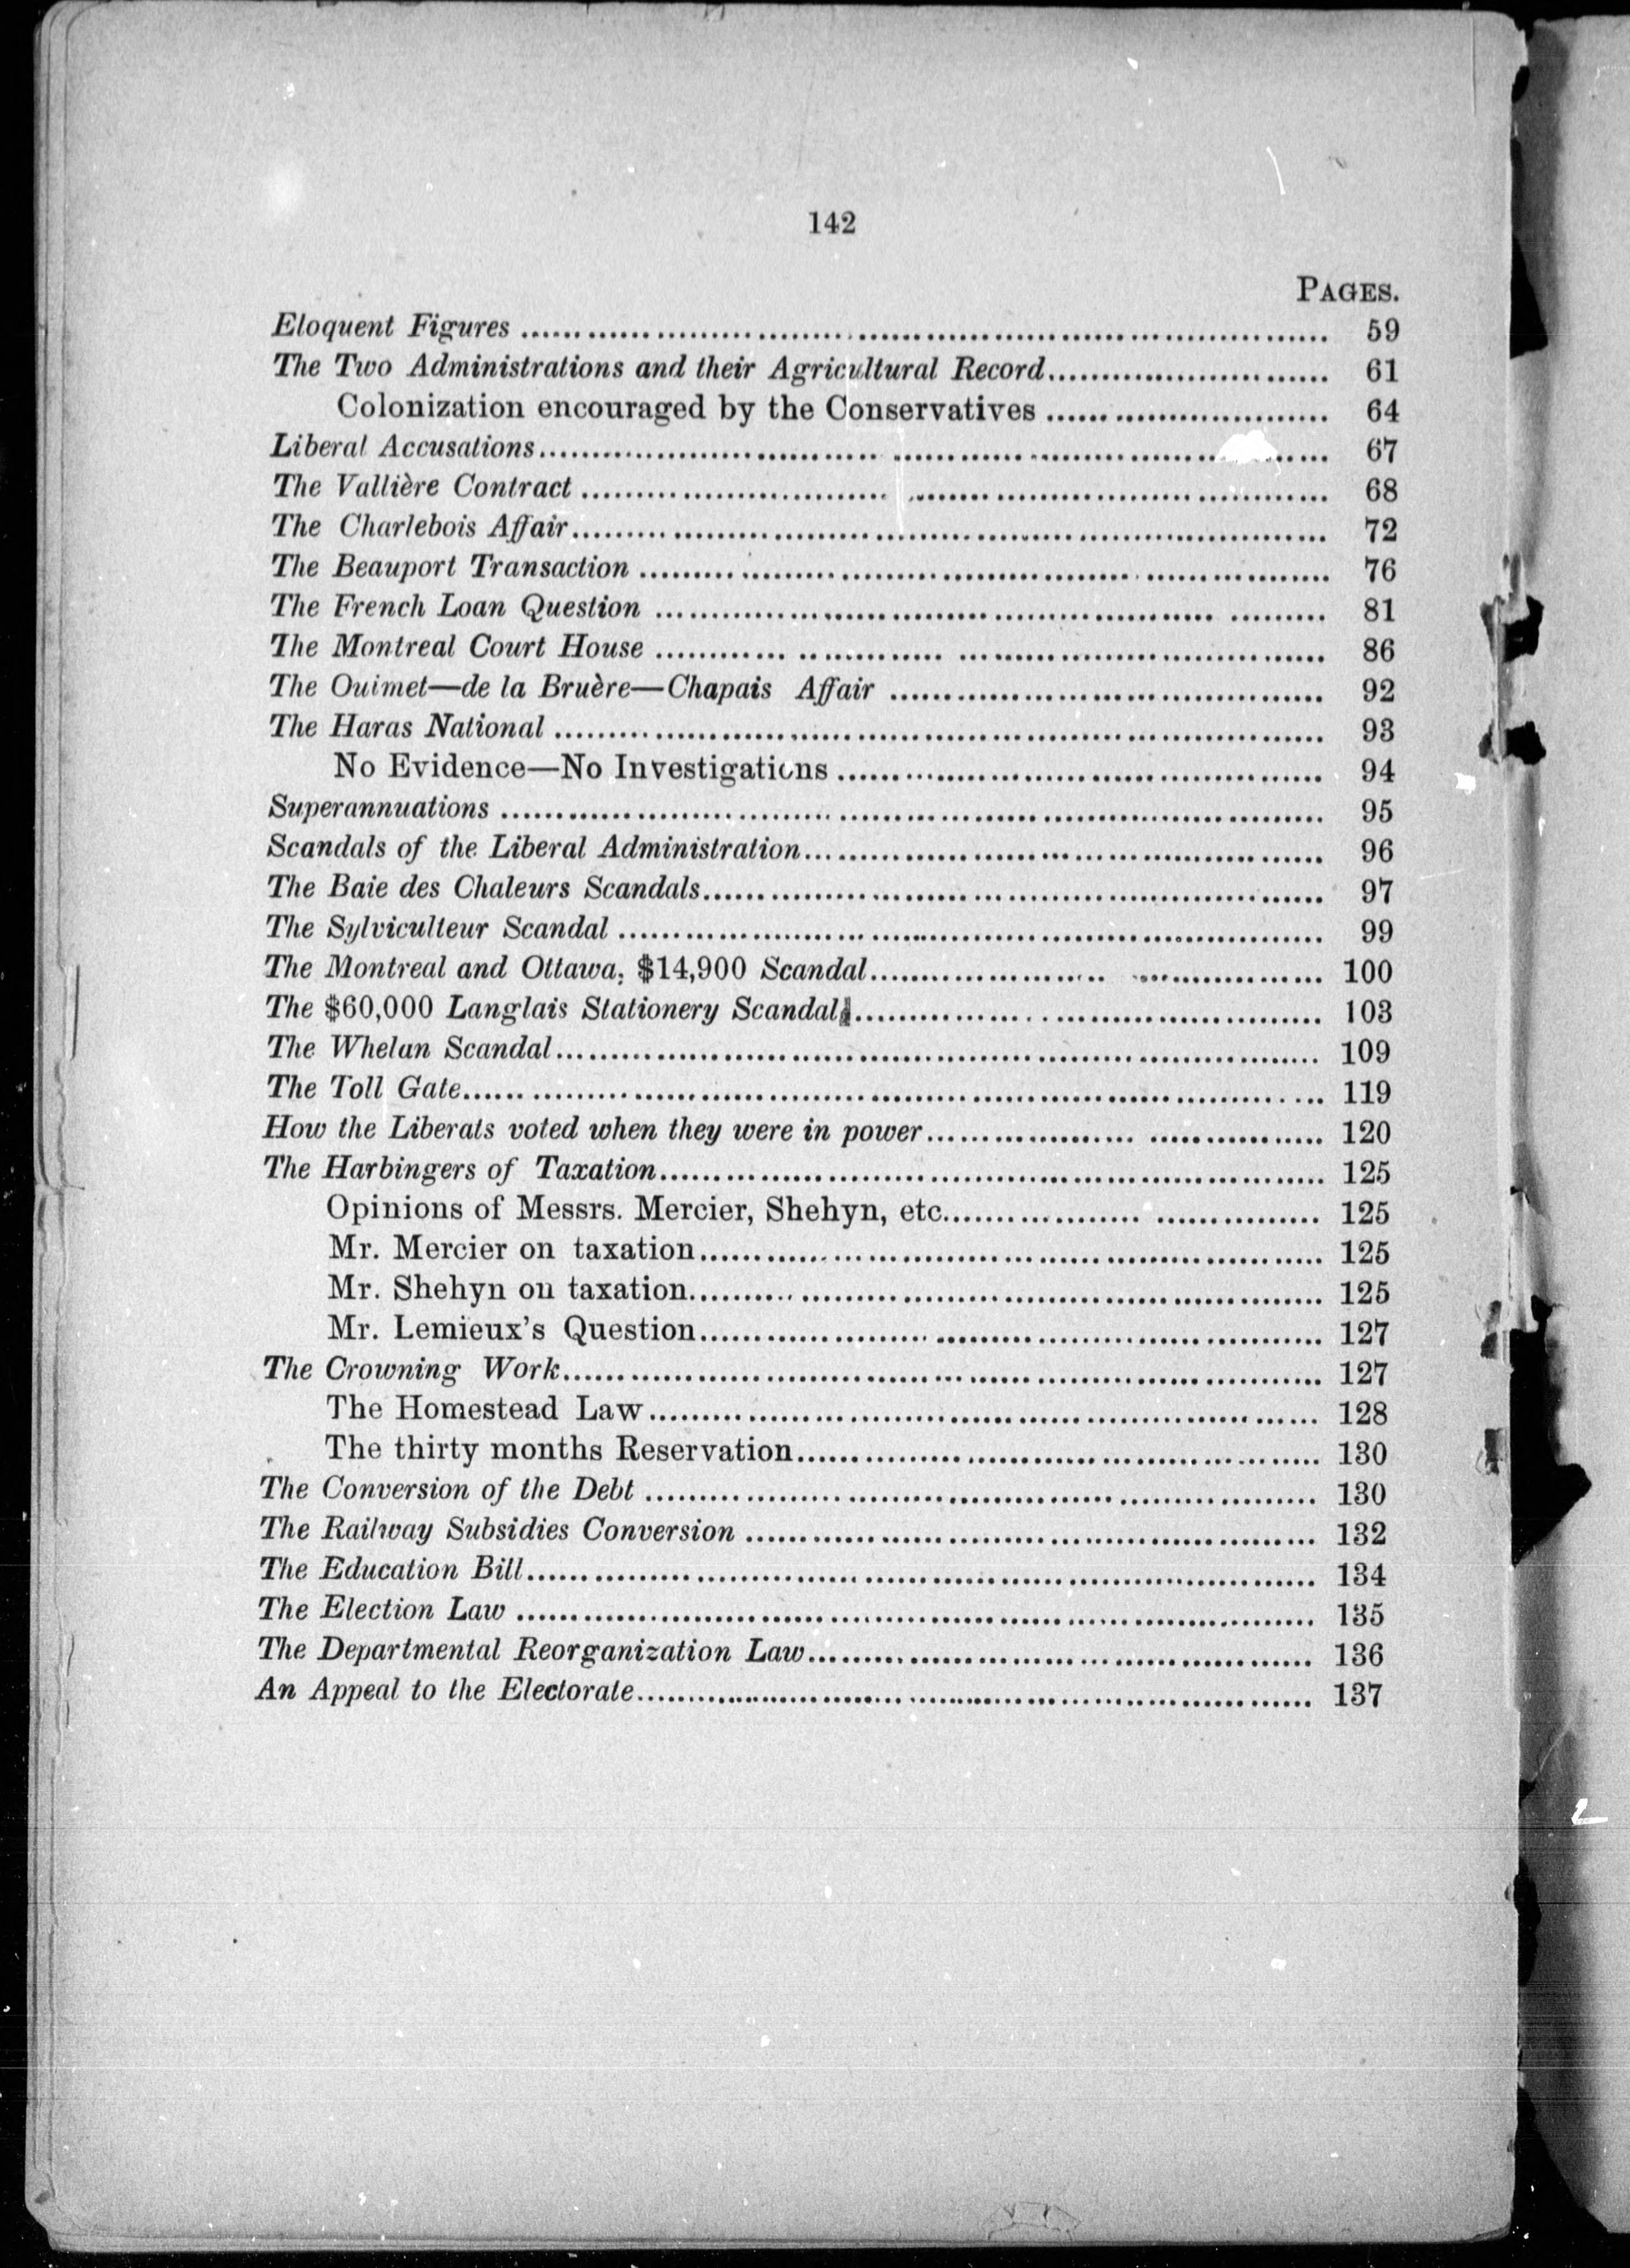 142
PAGES.
Eloquent Figures ........ 59
The Two Administrations and their Agricultural Record........ 61
Colonization encouraged by the Conservatives ........ 64
Liberal Accusations........ 67
The Vallière Contract ........ 68
The Charlebois Affair........ 72
The Beauport Transaction ........ 76
The French Loan Question ........ 81
The Montreal Court House ........ 86
The Ouimet—de la Bruère—Chapais Affair ........ 92
The Haras National ........ 93
No Evidence—No Investigations ........ 94
Superannuations ........ 95
Scandals of the Liberal Administration........ 96
The Baie des Chaleurs Scandals........ 97
The Sylviculteur Scandal ........ 99
The Montreal and Ottawa, $14,900 Scandal........ 100
The $60,000 Langlais Stationery Scandal........ 103
The Whelan Scandal........ 109
The Toll Gate........ 119
How the Liberals voted when they were in power........ 120
The Harbingers of Taxation........ 125
Opinions of Messrs. Mercier, Shehyn, etc........ 125
Mr. Mercier on taxation........ 125
Mr. Shehyn on taxation........ 125
Mr. Lemieux's Question........ 127
The Crowning Work........ 127
The Homestead Law........ 128
The thirty months Reservation........ 130
The Conversion of the Debt ........ 130
The Railway Subsidies Conversion ........ 132
The Education Bill........ 134
The Election Law ........ 135
The Departmental Reorganization Law........ 136
An Appeal to the Electorate........ 137